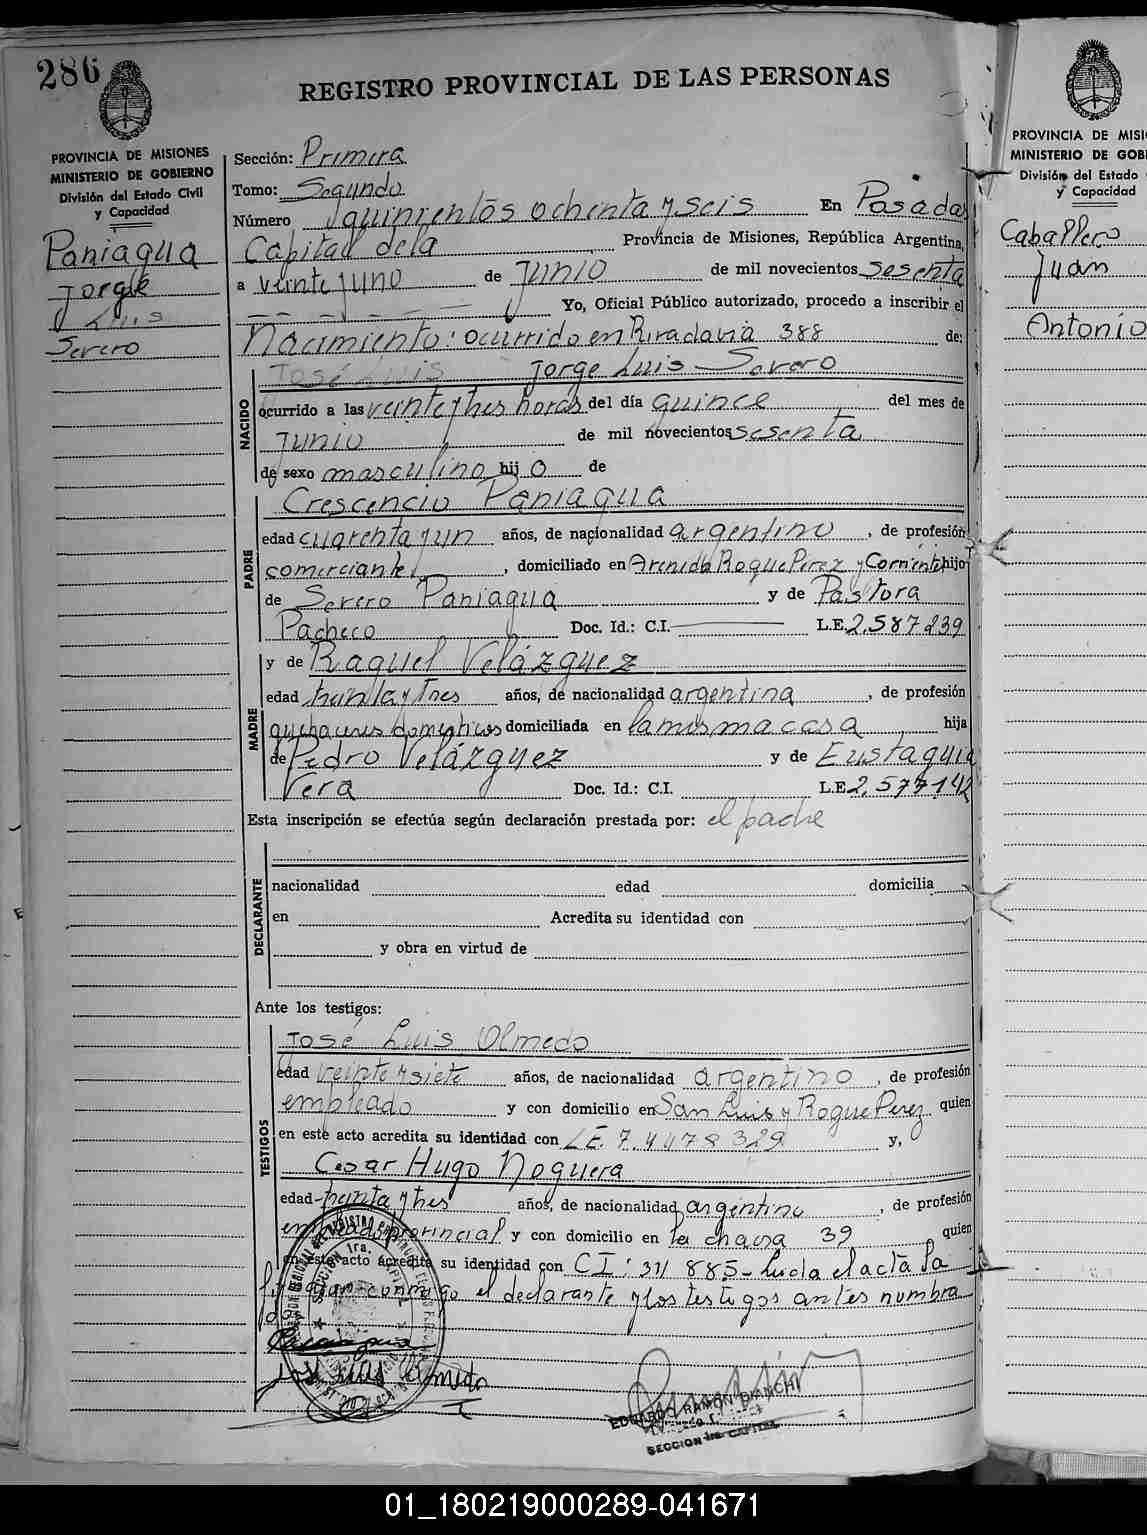 286
REGISTRO PROVINCIAL DE LAS PERSONAS
PROVINCIA DE MISIONES
MINISTERIO DE GOBIERNO
División del Estado Civil
y Capacidad
Paniagua
Jorge
Luis
Severo
Sección: Primera
Tomo: Segundo
Número quinientos ochenta y seis En Posadas
Capital de la Provincia de Misiones, República Argentina,
a veinte y uno de Junio de mil novecientos sesenta
Yo, Oficial Público autorizado, procedo a inscribir el
Nacimiento: ocurrido en Rivadavia 388 de:
José Luis Jorge Luis Severo
NACIDO
ocurrido a las veinte y tres horas del día quince del mes de
Junio de mil novecientos sesenta
de sexo masculino hijo de
PADRE
Crescencio Paniagua
edad cuarenta y un años, de nacionalidad argentino, de profesión
comerciante, domiciliado en Avenida Roque Perez y Corrientes hijo
de Severo Paniagua y de Pastora
Pacheco Doc. Id.: C.I. L.E. 2.587239
MADRE
y de Raquel Velázquez
edad treinta y tres años, de nacionalidad argentina, de profesión
quehaceres domesticos domiciliada en la misma casa hija
de Pedro Velázquez y de Eustaquia
Vera Doc. Id.: C.I. L.E. 2.577142
Esta inscripción se efectúa según declaración prestada por: el padre
DECLARANTE
nacionalidad edad domicilia
en Acredita su identidad con
y obra en virtud de
Ante los testigos:
TESTIGOS
José Luis Olmedo
edad veinte y siete años, de nacionalidad argentino, de profesión
empleado y con domicilio en San Luis y Roque Perez quien
en este acto acredita su identidad con L.E. 7.4478329 y,
Cesar Hugo Noguera
edad treinta y tres años, de nacionalidad argentino, de profesión
empleado provincial y con domicilio en la chacra 39 quien
en este acto acredita su identidad con C I: 311 885 - Leida el acta la
firman conmigo el declarante y los testigos antes nombra
dos
Paniagua
José Luis Olmedo
EDUARDO RAMON BIANCHI
SECCION 1ra. CAPITAL
PROVINCIA DE MISI
MINISTERIO DE GOB
División del Estado
y Capacidad
Caballero
Juan
Antonio
01_180219000289-041671